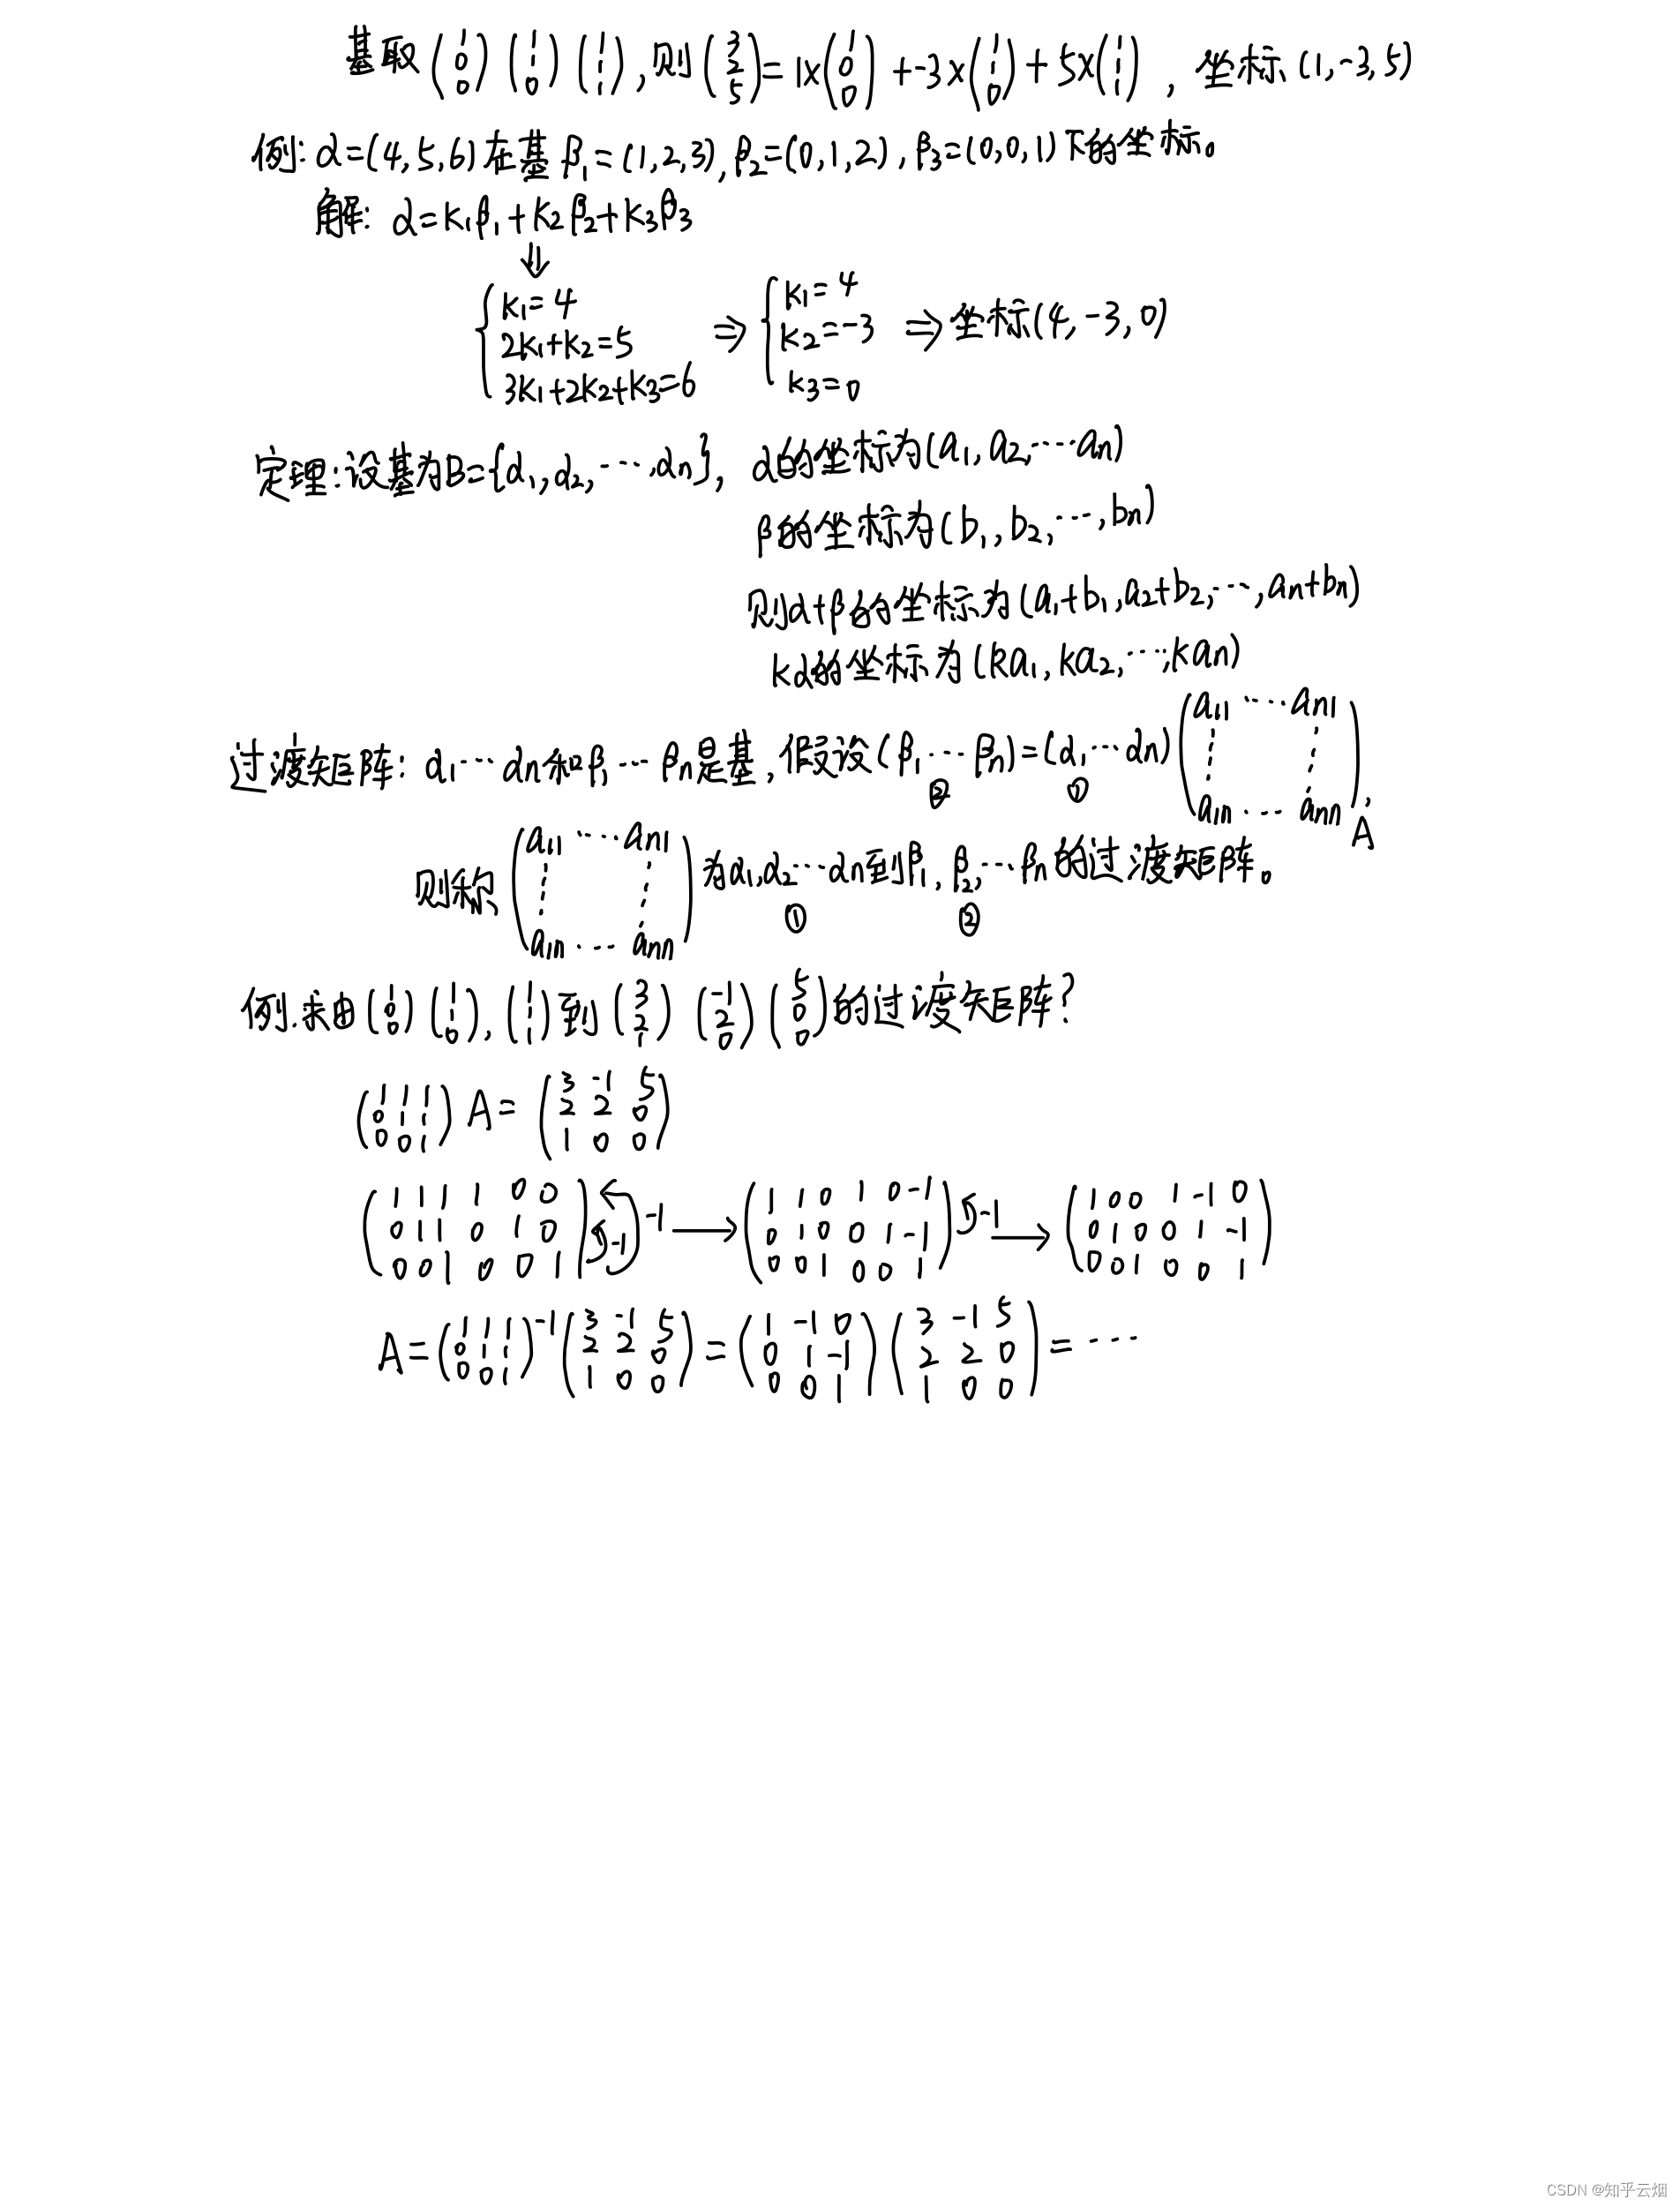 基取 (1 0 0) (1 1 0) (1 1 1), 则 (3 2 5) = 1×(1 0 0) + -3×(1 1 0) + 5×(1 1 1), 坐标 (1, -3, 5)
例: α=(4,5,6) 在基 β₁=(1,2,3), β₂=(0,1,2), β₃=(0,0,1) 下的坐标。
解: α=k₁β₁+k₂β₂+k₃β₃
⇓
{ k₁=4 ⇒ { k₁=4
2k₁+k₂=5 k₂=-3 ⇒ 坐标(4, -3, 0)
3k₁+2k₂+k₃=6 k₃=0
定理: 设基为B={α₁, α₂, …, αn}, α的坐标为(a₁, a₂, … an)
β的坐标为(b₁, b₂, …, bn)
则α+β的坐标为(a₁+b₁, a₂+b₂, …, an+bn)
kα的坐标为(ka₁, ka₂, …, kan)
过渡矩阵: α₁…αn和β₁…βn是基, 假设(β₁…βn)=(α₁…αn) (a₁₁ … an1 ⋮ ⋮ a1n … ann)
② ① A
则称 (a₁₁ … an1 ⋮ ⋮ a1n … ann) 为α₁,α₂…αn到β₁, β₂,…βn的过渡矩阵。
① ②
例. 求由 (1 0 0) (1 1 0), (1 1 1) 到 (3 2 1) (-1 2 0) (5 0 0) 的过渡矩阵?
(1 1 1
0 1 1
0 0 1) A = (3 -1 5
2 2 0
1 0 0)
(1 1 1 1 0 0
0 1 1 0 1 0
0 0 1 0 0 1) -1 -1 → (1 1 0 1 0 -1
0 1 0 0 1 -1
0 0 1 0 0 1) -1 → (1 0 0 1 -1 0
0 1 0 0 1 -1
0 0 1 0 0 1)
A = (1 1 1
0 1 1
0 0 1)⁻¹ (3 -1 5
2 2 0
1 0 0) = (1 -1 0
0 1 -1
0 0 1) (3 -1 5
2 2 0
1 0 0) = …
CSDN @知乎云烟